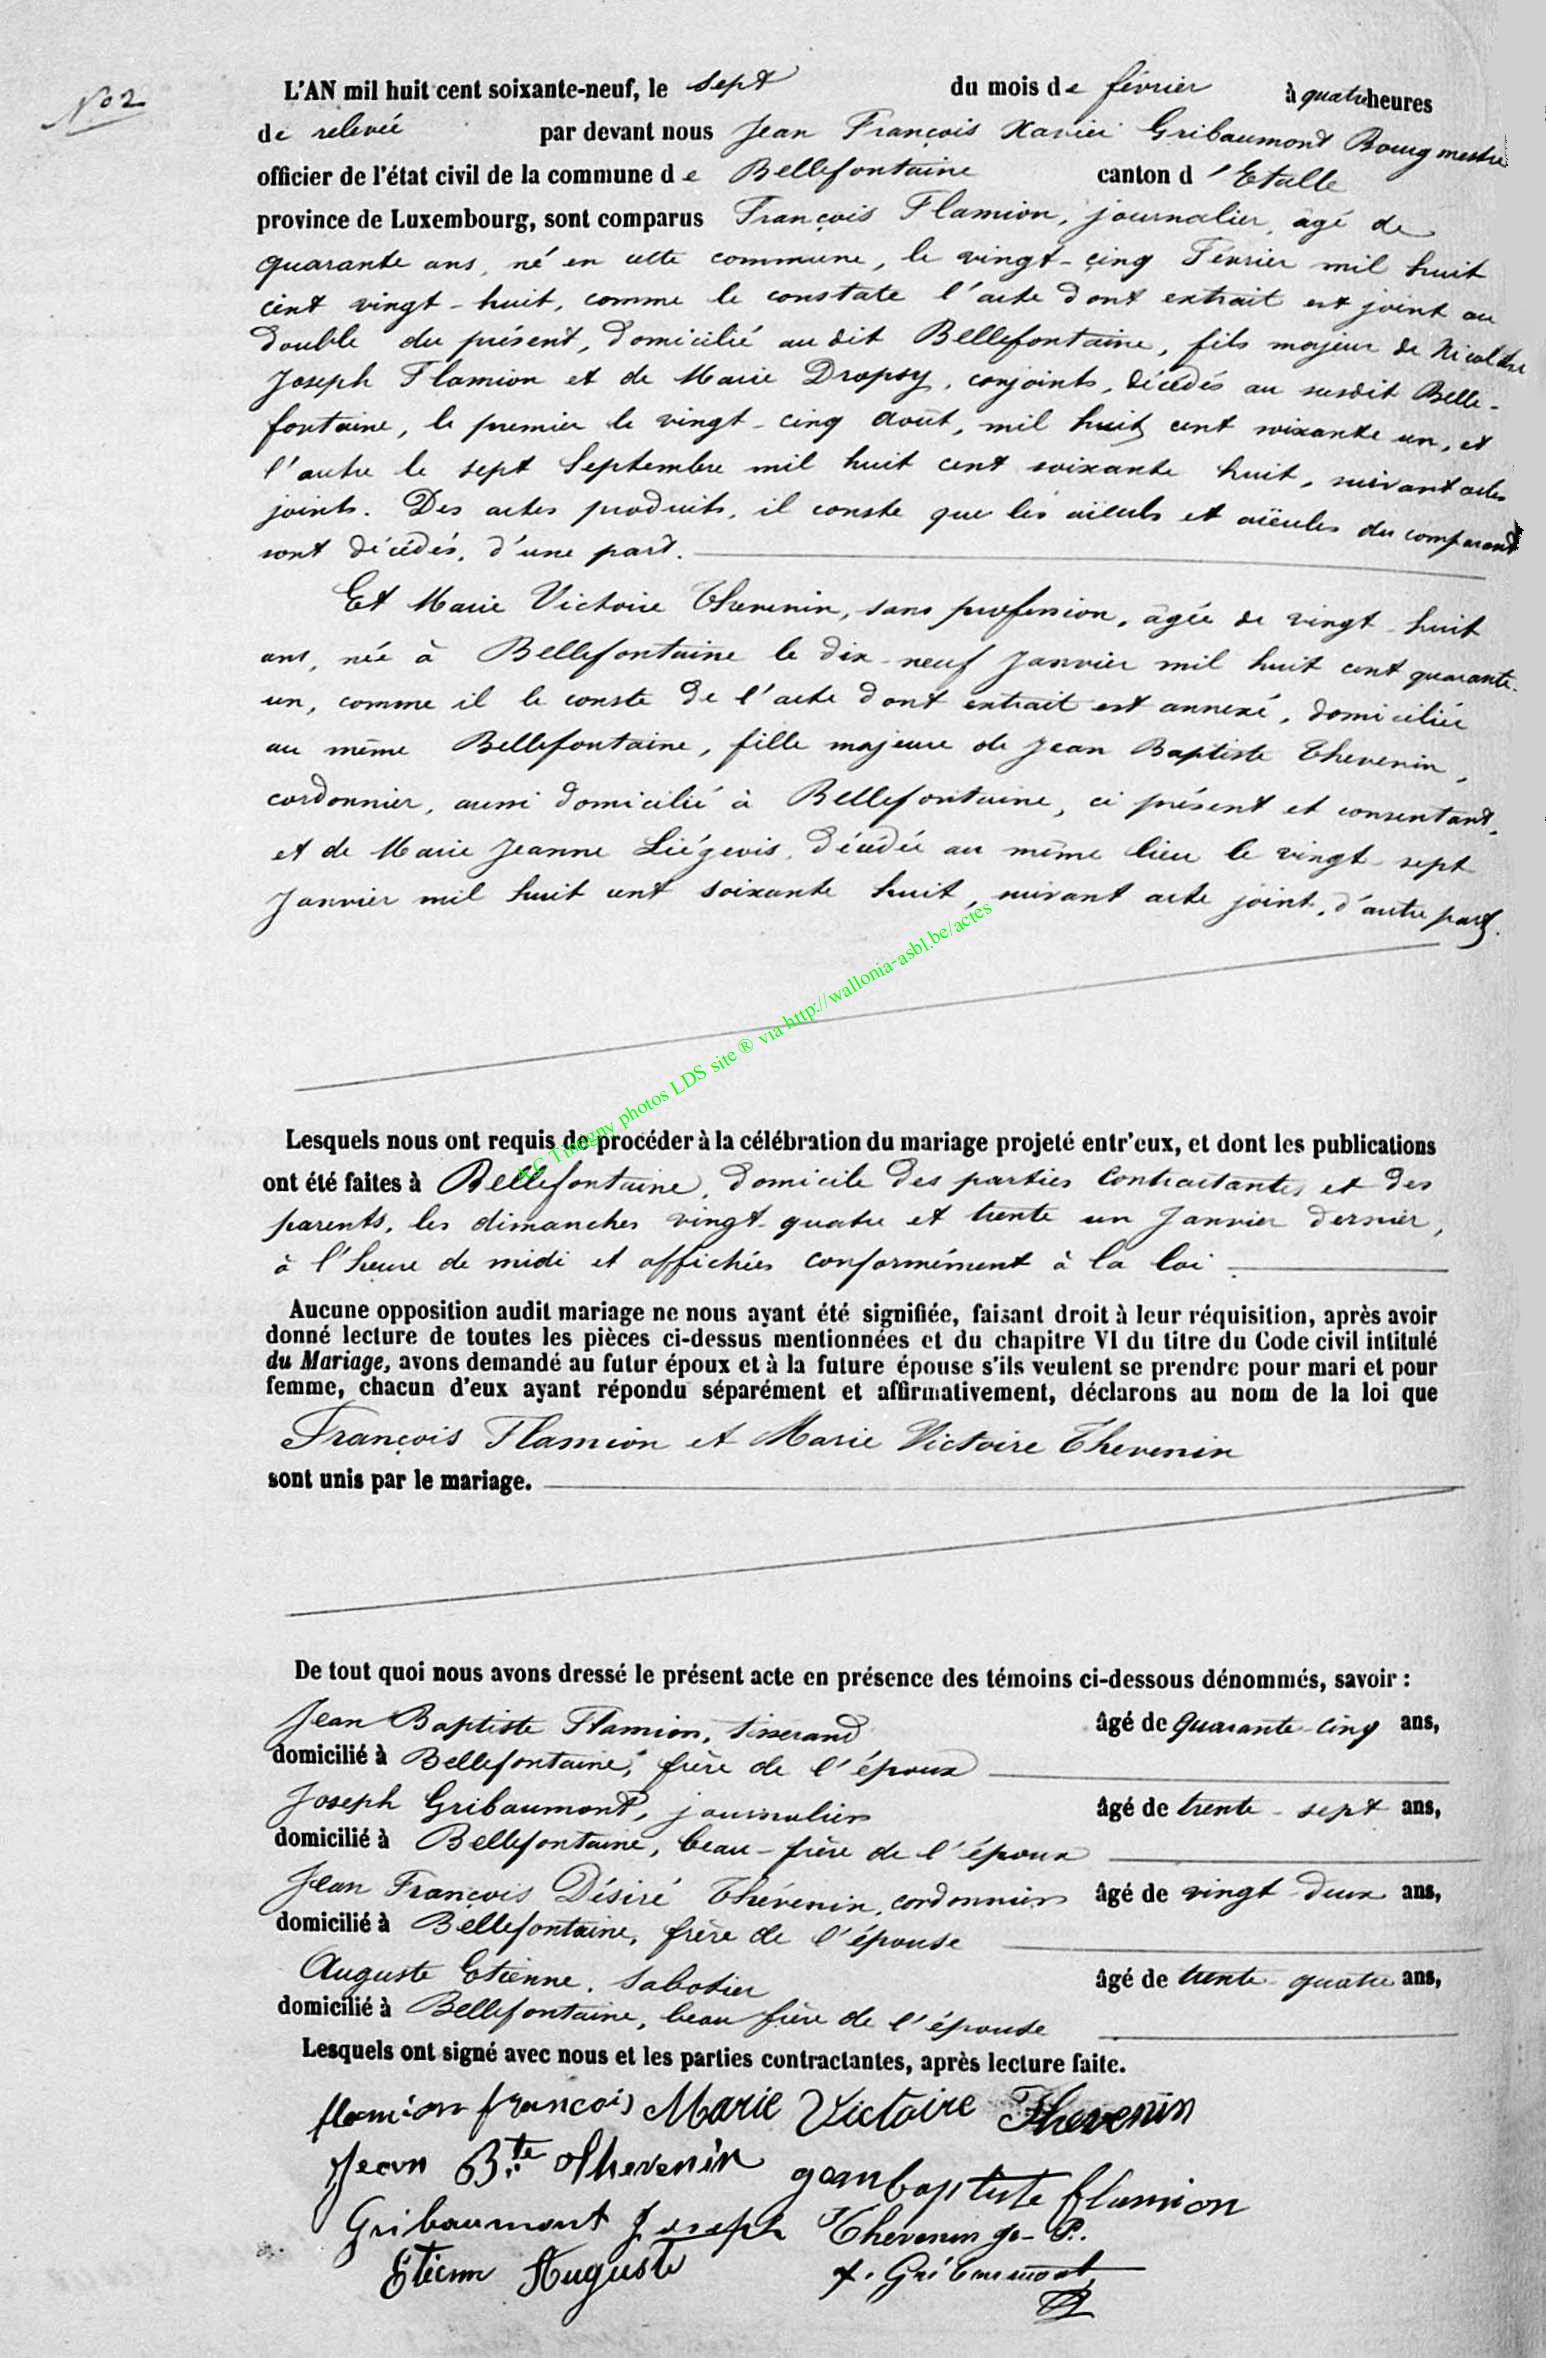 No 2
L'AN mil huit cent soixante-neuf, le sept du mois de février à quatre heures
de relevée par devant nous Jean François Xavier Gribaumont Bourgmestre
officier de l'état civil de la commune de Bellefontaine canton d'Etalle
province de Luxembourg, sont comparus François Flamion, journalier, âgé de
quarante ans, né en cette commune, le vingt-cinq Février mil huit
cent vingt-huit, comme le constate l'acte dont extrait est joint au
double du présent, domicilié au dit Bellefontaine, fils majeur de
Joseph Flamion et de Marie Dropsy, conjoints, décédés au susdit Belle-
fontaine, le premier le vingt-cinq Août, mil huit cent soixante un, et
l'autre le sept Septembre mil huit cent soixante huit, suivant actes
joints. Des actes produits, il conste que les aïeuls et aïeules du comparant
sont décédés, d'une part.
Et Marie Victoire Thevenin, sans profession, âgée de vingt-huit
ans, née à Bellefontaine le dix-neuf Janvier mil huit cent quarante-
un, comme il le conste de l'acte dont extrait est annexé, domiciliée
au même Bellefontaine, fille majeure de Jean Baptiste Thevenin,
cordonnier, aussi domicilié à Bellefontaine, ci présent et consentant,
et de Marie Jeanne Liégeois, décédée au même lieu le vingt-sept
Janvier mil huit cent soixante huit, suivant acte joint, d'autre part.
AC Tintigny photos LDS site ® via http://wallonia-asbl.be/actes
Lesquels nous ont requis de procéder à la célébration du mariage projeté entr'eux, et dont les publications
ont été faites à Bellefontaine, domicile des parties contractantes et des
parents, les dimanches vingt-quatre et trente un Janvier dernier,
à l'heure de midi et affichées conformément à la loi.
Aucune opposition audit mariage ne nous ayant été signifiée, faisant droit à leur réquisition, après avoir
donné lecture de toutes les pièces ci-dessus mentionnées et du chapitre VI du titre du Code civil intitulé
du Mariage, avons demandé au futur époux et à la future épouse s'ils veulent se prendre pour mari et pour
femme, chacun d'eux ayant répondu séparément et affirmativement, déclarons au nom de la loi que
François Flamion et Marie Victoire Thevenin
sont unis par le mariage.
De tout quoi nous avons dressé le présent acte en présence des témoins ci-dessous dénommés, savoir :
Jean Baptiste Flamion, tisserand âgé de quarante-cinq ans,
domicilié à Bellefontaine, frère de l'époux
Joseph Gribaumont, journalier âgé de trente-sept ans,
domicilié à Bellefontaine, beau-frère de l'époux
Jean François Désiré Thévenin, cordonnier âgé de vingt-deux ans,
domicilié à Bellefontaine, frère de l'épouse
Auguste Etienne, sabotier âgé de trente-quatre ans,
domicilié à Bellefontaine, beau frère de l'épouse
Lesquels ont signé avec nous et les parties contractantes, après lecture faite.
flamion françois Marie Victoire Thevenin
Jean Bte Thevenin jean baptiste flamion
Gribaumont Joseph Thevenin
Etienn Auguste X. Gribaumont